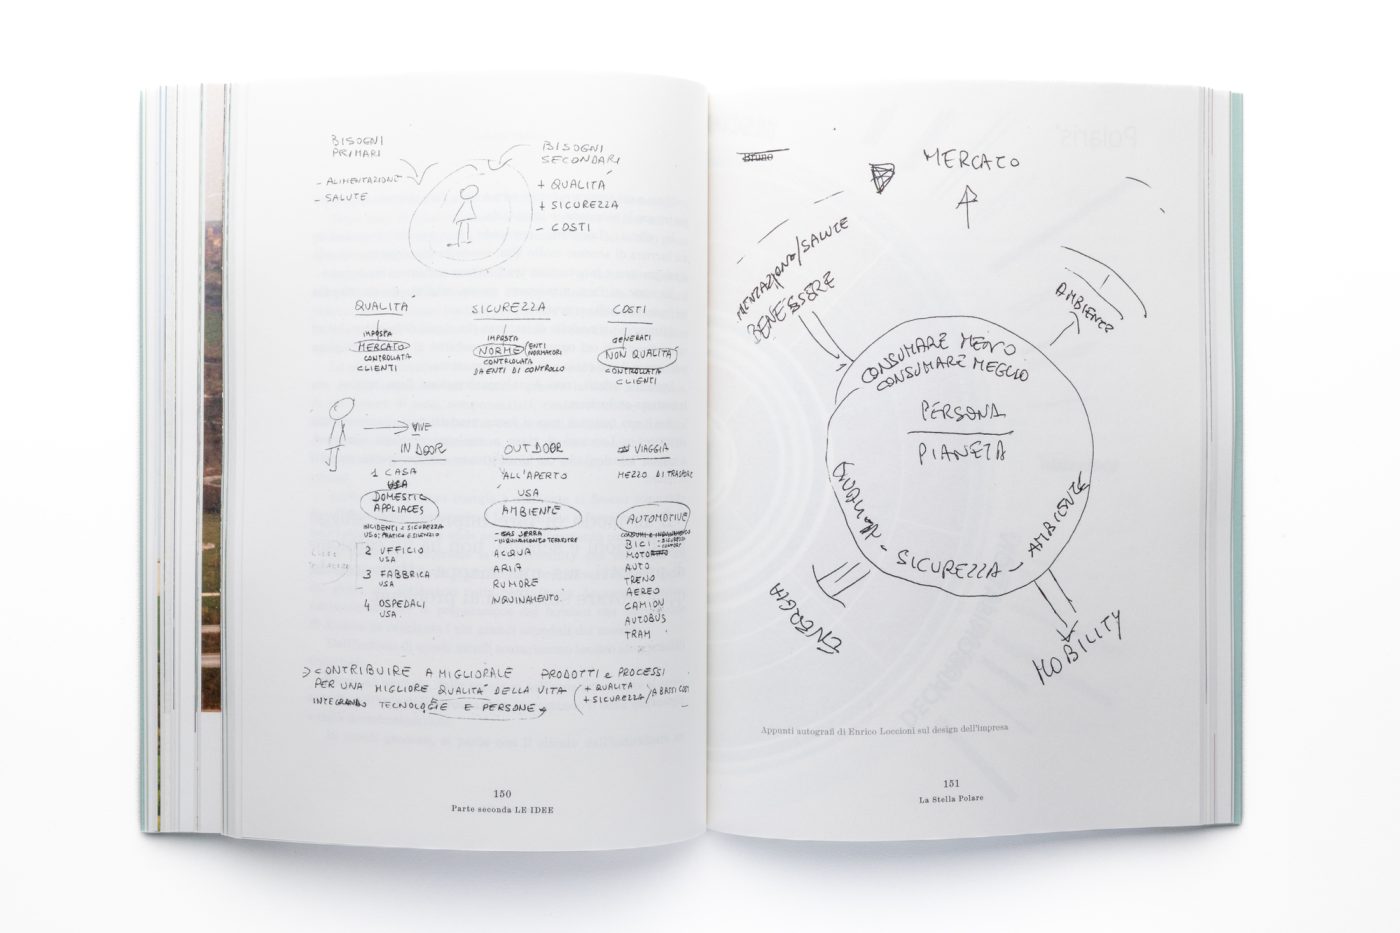 BISOGNI
PRIMARI
- ALIMENTAZIONE
- SALUTE
BISOGNI
SECONDARI
+ QUALITÀ
+ SICUREZZA
- COSTI
QUALITÀ
IMPOSTA
MERCATO
CONTROLLATA
CLIENTI
SICUREZZA
IMPOSTA
NORME
ENTI
NORMATORI
CONTROLLATA
DA ENTI DI CONTROLLO
COSTI
GENERATI
NON QUALITÀ
CONTROLLATA
CLIENTI
VIVE
INDOOR
1 CASA
USA
DOMESTIC
APPLIACES
INCIDENTI = SICUREZZA
USO: PRATICO E SILENZIO
2 UFFICIO
USA
3 FABBRICA
USA
4 OSPEDALI
USA
OUTDOOR
ALL'APERTO
USA
AMBIENTE
- GAS SERRA
- INQUINAMENTO TERRESTRE
ACQUA
ARIA
RUMORE
INQUINAMENTO
VIAGGIA
MEZZO DI TRASPORT
AUTOMOTIVE
CONSUMI E INQUINAMENTO
- SICUREZZA
- COMFORT
BICI
MOTO
AUTO
TRENO
AEREO
CAMION
AUTOBUS
TRAM
> CONTRIBUIRE A MIGLIORALE PRODOTTI e PROCESSI
PER UNA MIGLIORE QUALITÀ DELLA VITA (+ QUALITA
+ SICUREZZA / A BASSI COSTI
INTEGRANDO TECNOLOGIE E PERSONE
150
Parte seconda LE IDEE
Polaris
Bruno
MERCATO
MENTAZIONE/SALUTE
BENESSERE
AMBIENTE
CONSUMARE MENO
CONSUMARE MEGLIO
PERSONA
PIANETA
- SICUREZZA - AMBIENTE
ENERGIA
MOBILITY
Appunti autografi di Enrico Loccioni sul design dell'impresa
151
La Stella Polare